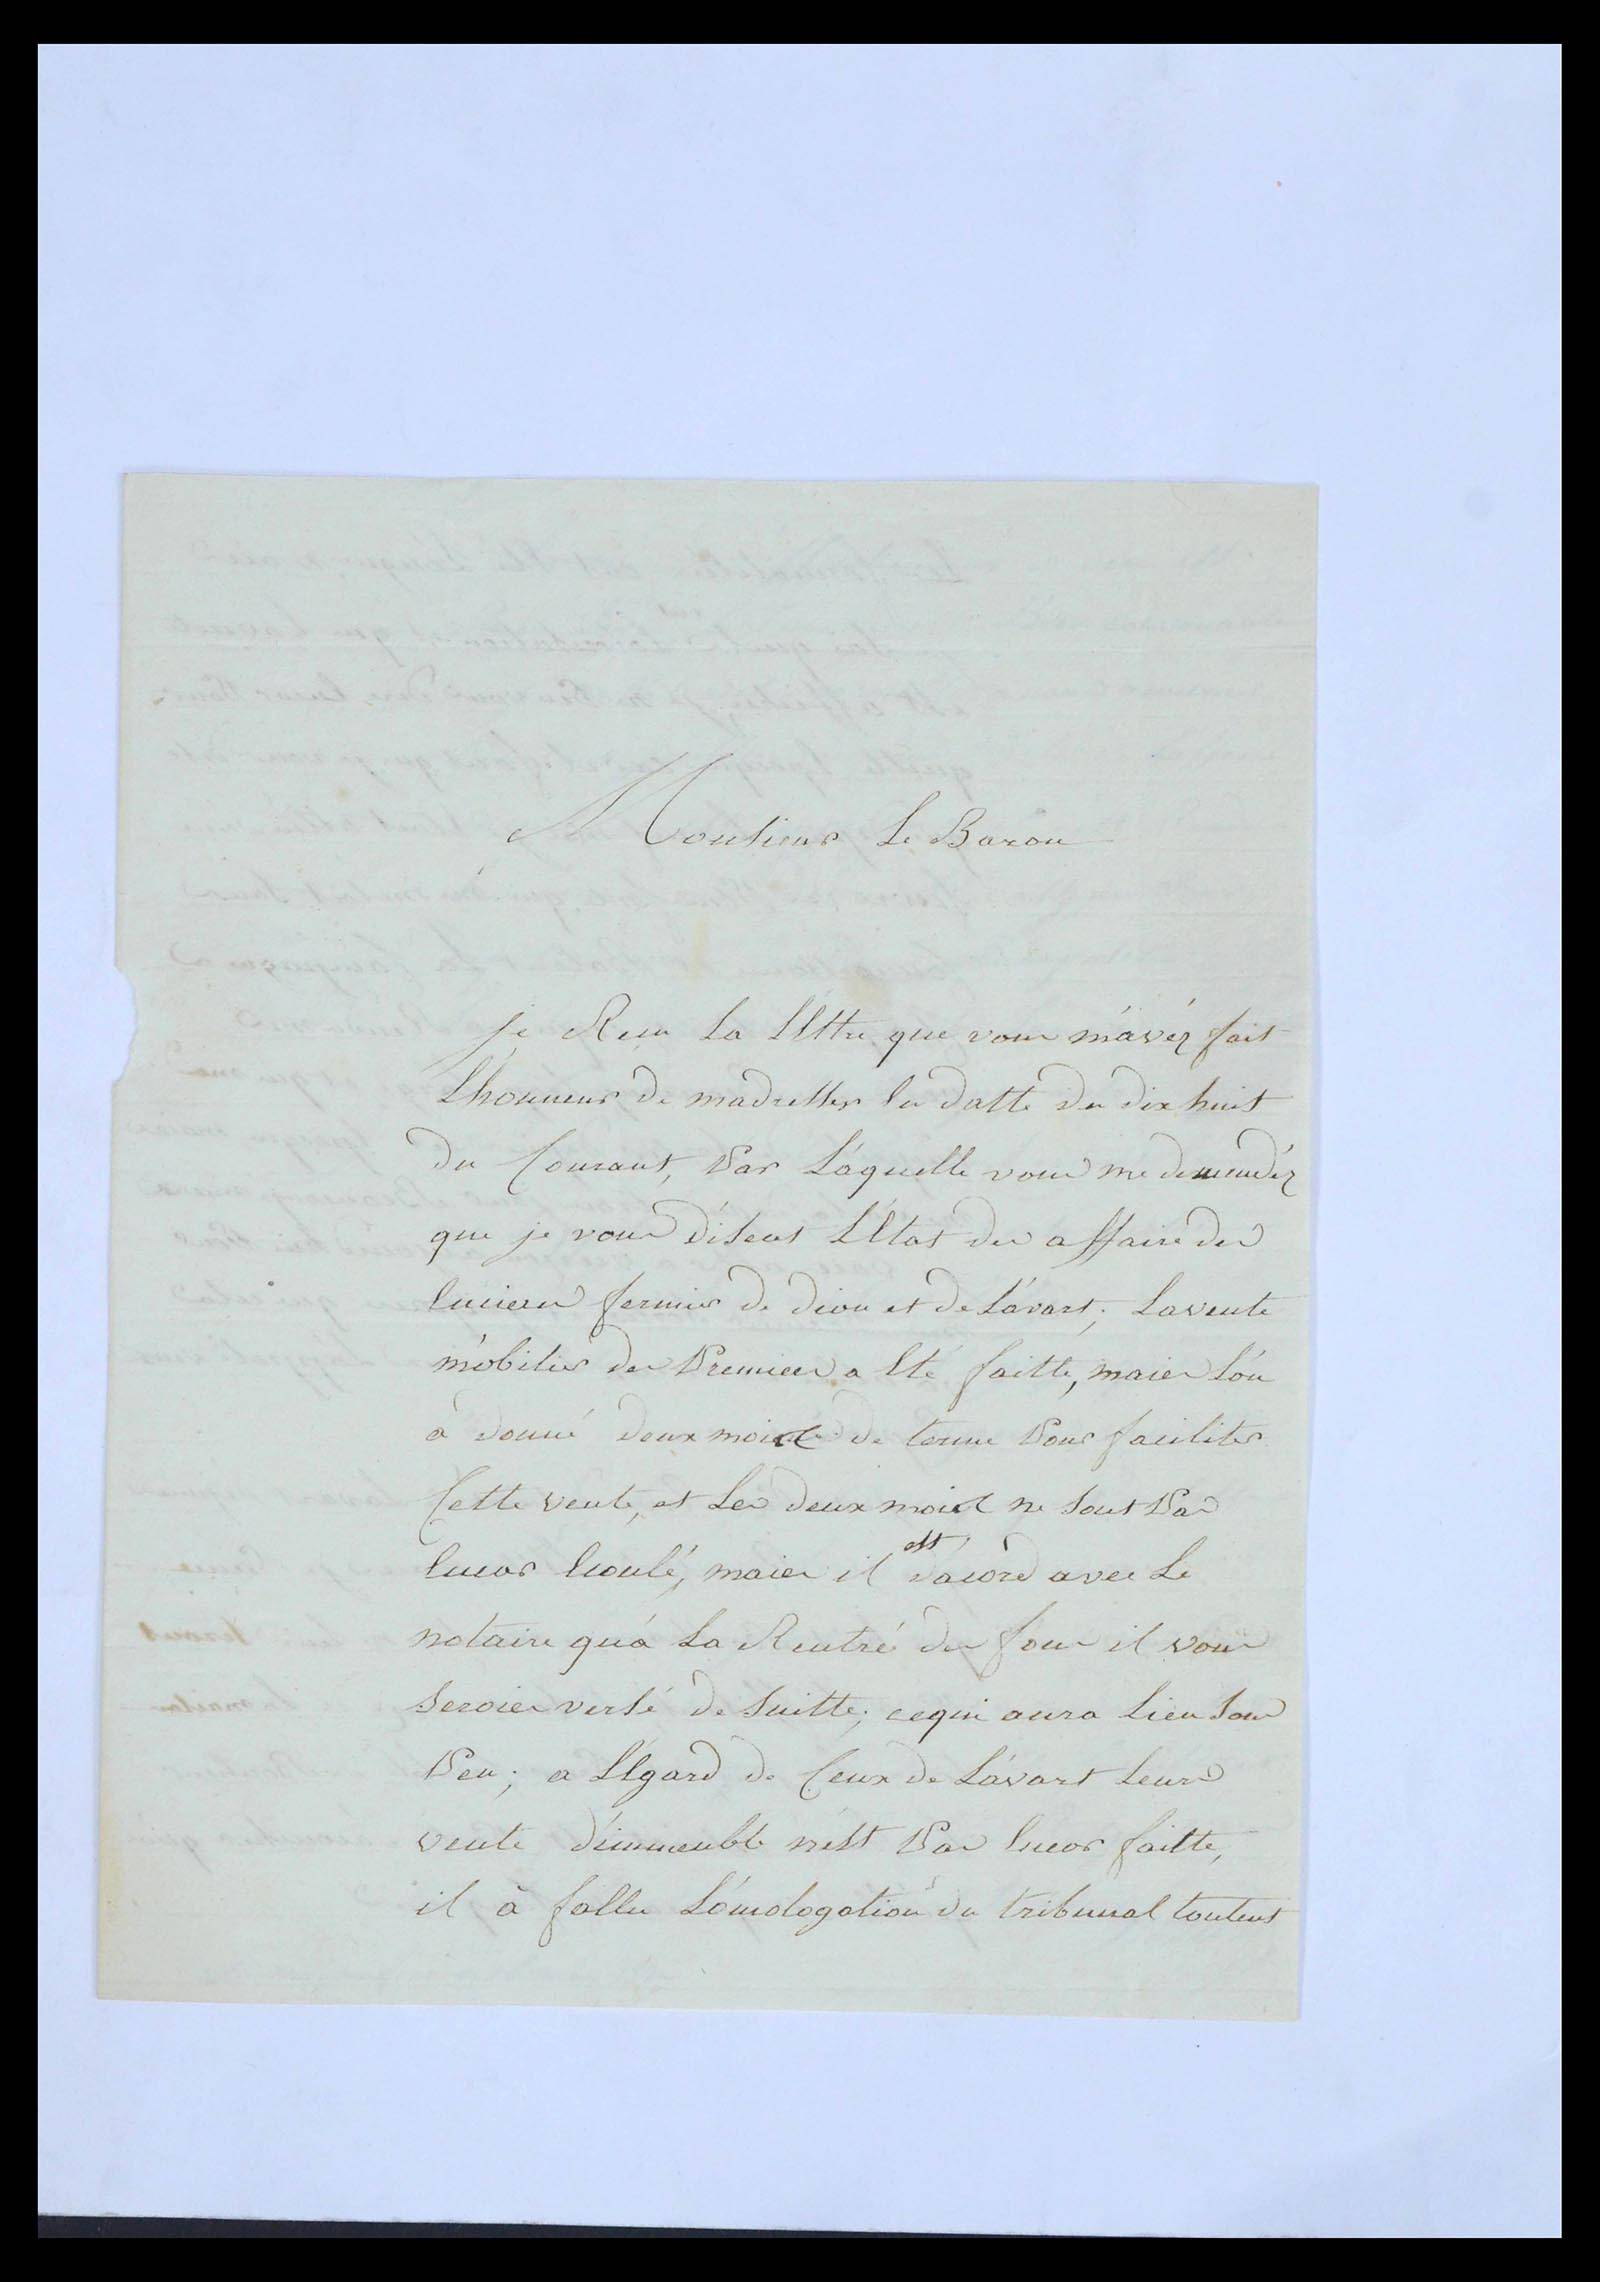 Monsieur Le Baron
je Recu La Lettre que vous m'avéz fait
L'honneur de madresser en datte du dix huit
du Courant, Par Láquelle vous me demendéz
que je vous disens L'Etat des affaire des
enciens fermier de dion et de Lávart; La vente
mobilier des Premiers a Eté faitte, mais L'on
à donné deux mois de terme Pour faciliter
Cette vente, et Les deux mois ne sont Pas
encor Ecoulé, mais il est dacord avec Le
notaire quá La Rentré des fons il vous
serois versé de suitte; cequi aura Lieu sous
Peu; a L'Egard de Ceux de Lávart Leurs
vente d'immeuble n'est Pas encor faitte,
il à fallu L'omologation du tribunal toutens